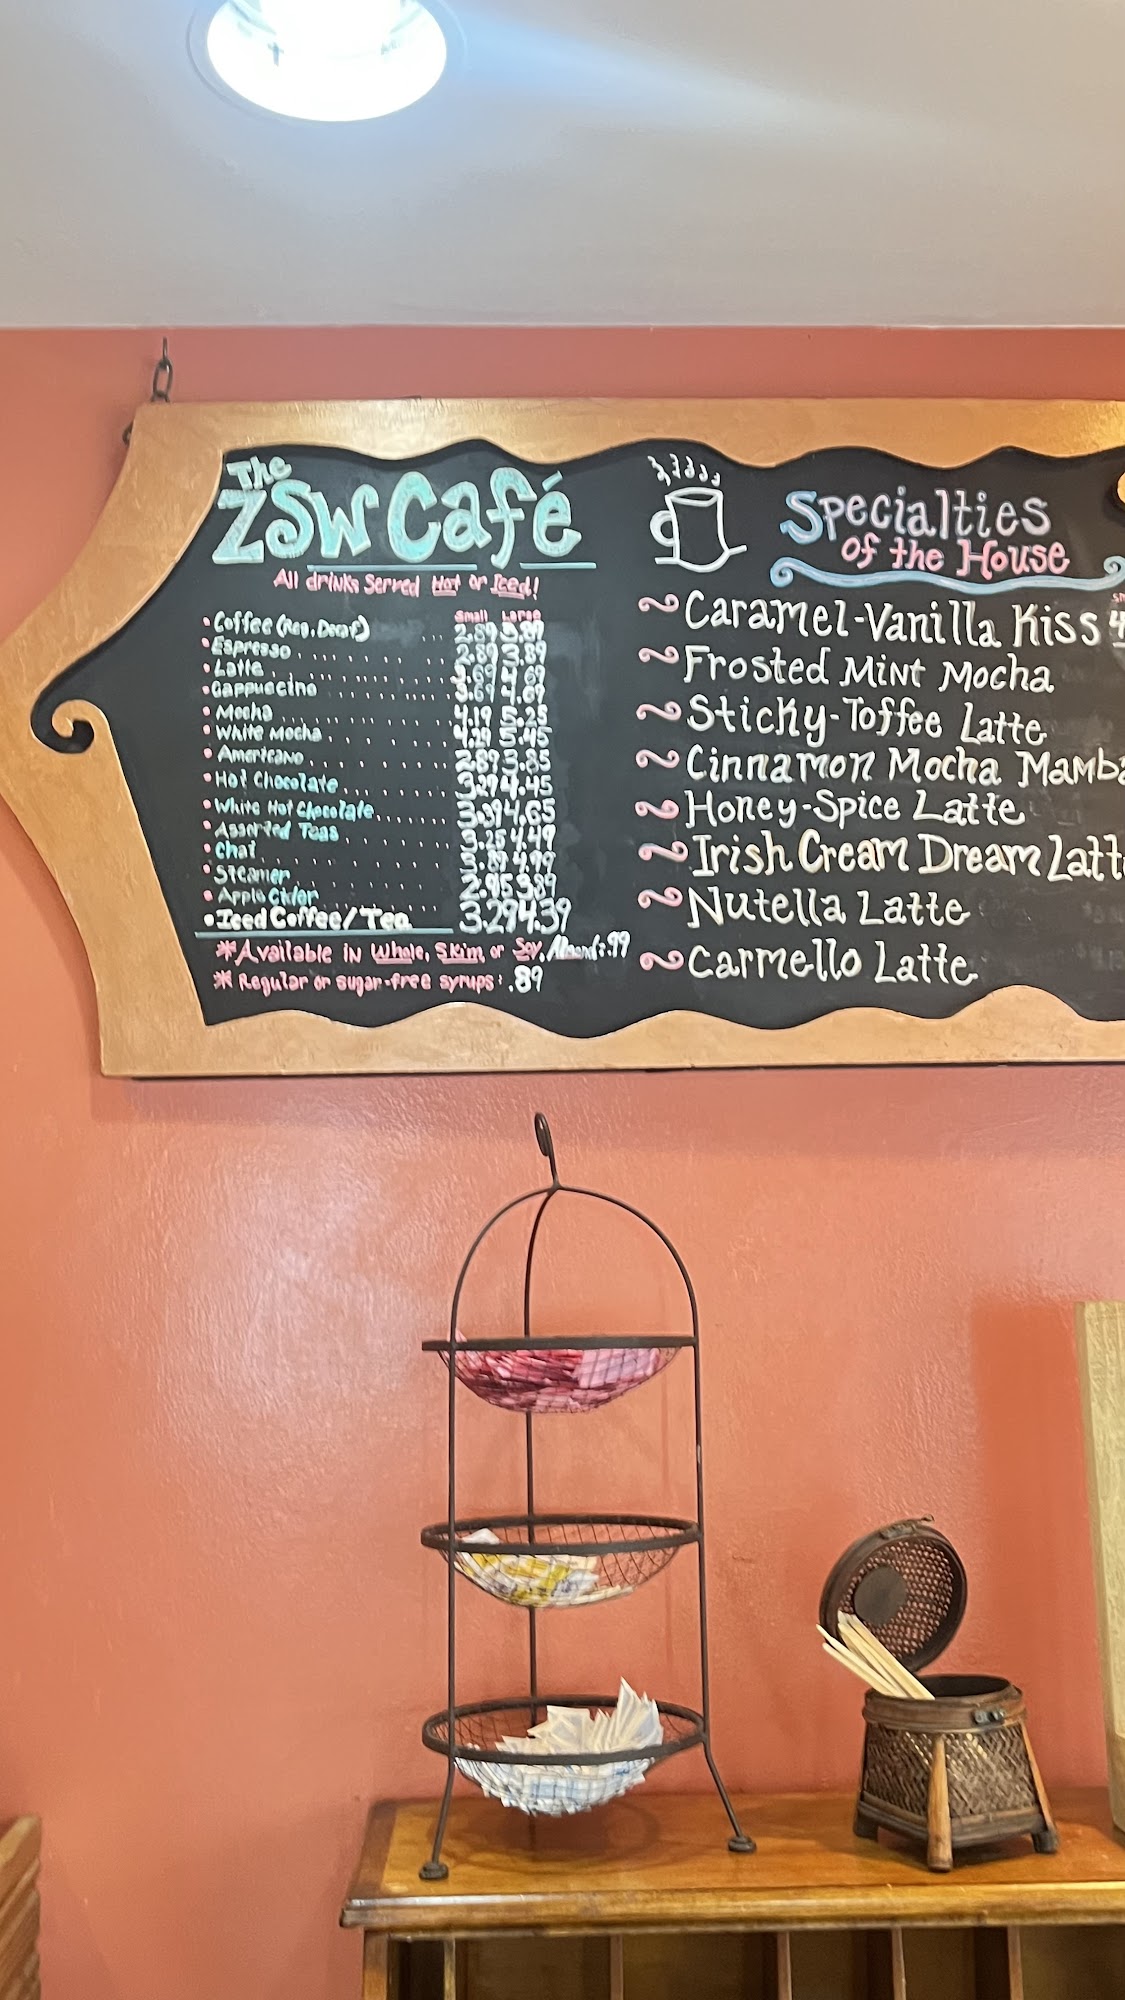 The
ZSW Café
All drinks Served Hot or Iced!
Small Large
• Coffee (Reg. Decaf) ... 2.89 3.89
• Espresso 2.89 3.89
• Latte 3.69 4.69
• Cappuccino 3.69 4.69
• Mocha 4.19 5.25
• White Mocha 4.29 5.45
• Americano 2.89 3.85
• Hot Chocolate 3.29 4.45
• White Hot Chocolate 3.39 4.65
• Assorted Teas 3.25 4.49
• Chai 3.89 4.99
• Steamer 2.95 3.89
• Apple Cider
• Iced Coffee/Tea 3.29 4.39
* Available in Whole, Skim or Soy, Almond: .99
* Regular or sugar-free syrups: .89
Specialties
of the House
Caramel-Vanilla Kiss
Frosted Mint Mocha
Sticky-Toffee Latte
Cinnamon Mocha Mamba
Honey-Spice Latte
Irish Cream Dream Latte
Nutella Latte
Carmello Latte